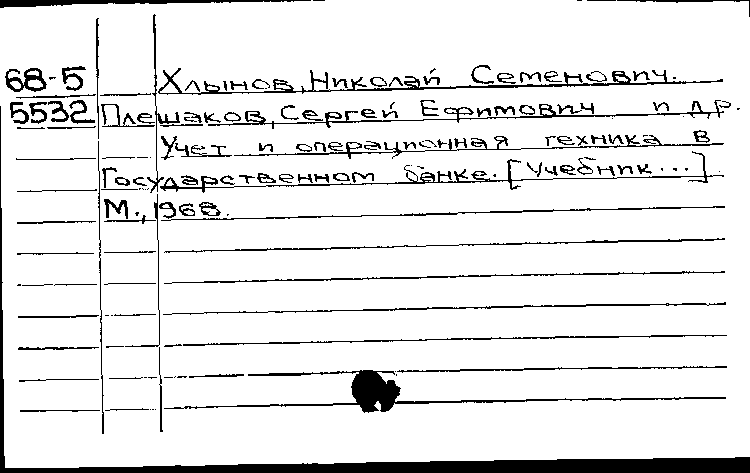 68-5 Хлынов, Николай Семенович.
5532 Плешаков, Сергей Ефимович и др.
Учет и операционная техника в
Государственном банке. [Учебник...]
М., 1968.